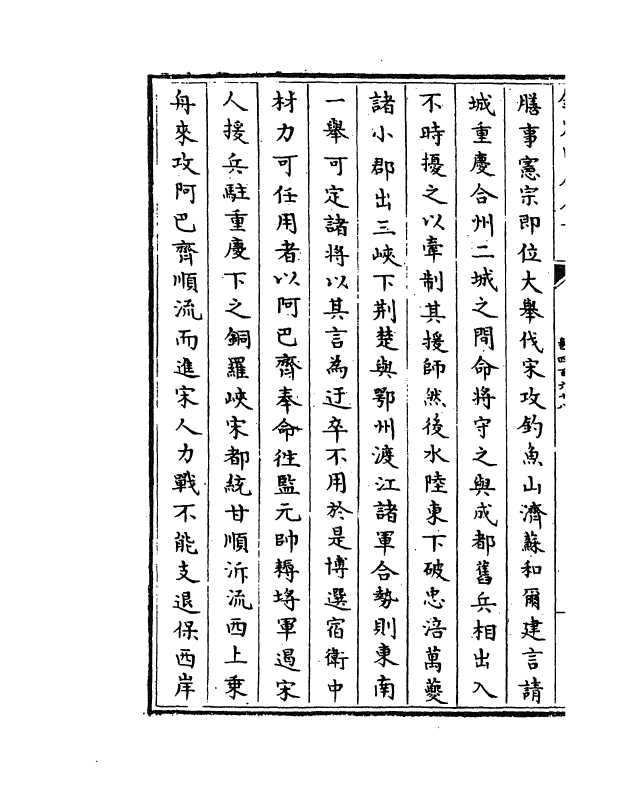 膳事憲宗即位大舉伐宋攻釣魚山濟蘇和爾建言請
城重慶合州二城之間命將守之與成都舊兵相出入
不時擾之以牽制其援師然後水陸東下破忠涪萬夔
諸小郡出三峽下荆楚與鄂州渡江諸軍合勢則東南
一舉可定諸將以其言為迂卒不用於是博選宿衛中
材力可任用者以阿巴齊奉命往監元帥耨埒軍遏宋
人援兵駐重慶下之銅羅峽宋都統甘順泝流西上乗
舟來攻阿巴齊順流而進宋人力戰不能支退保西岸